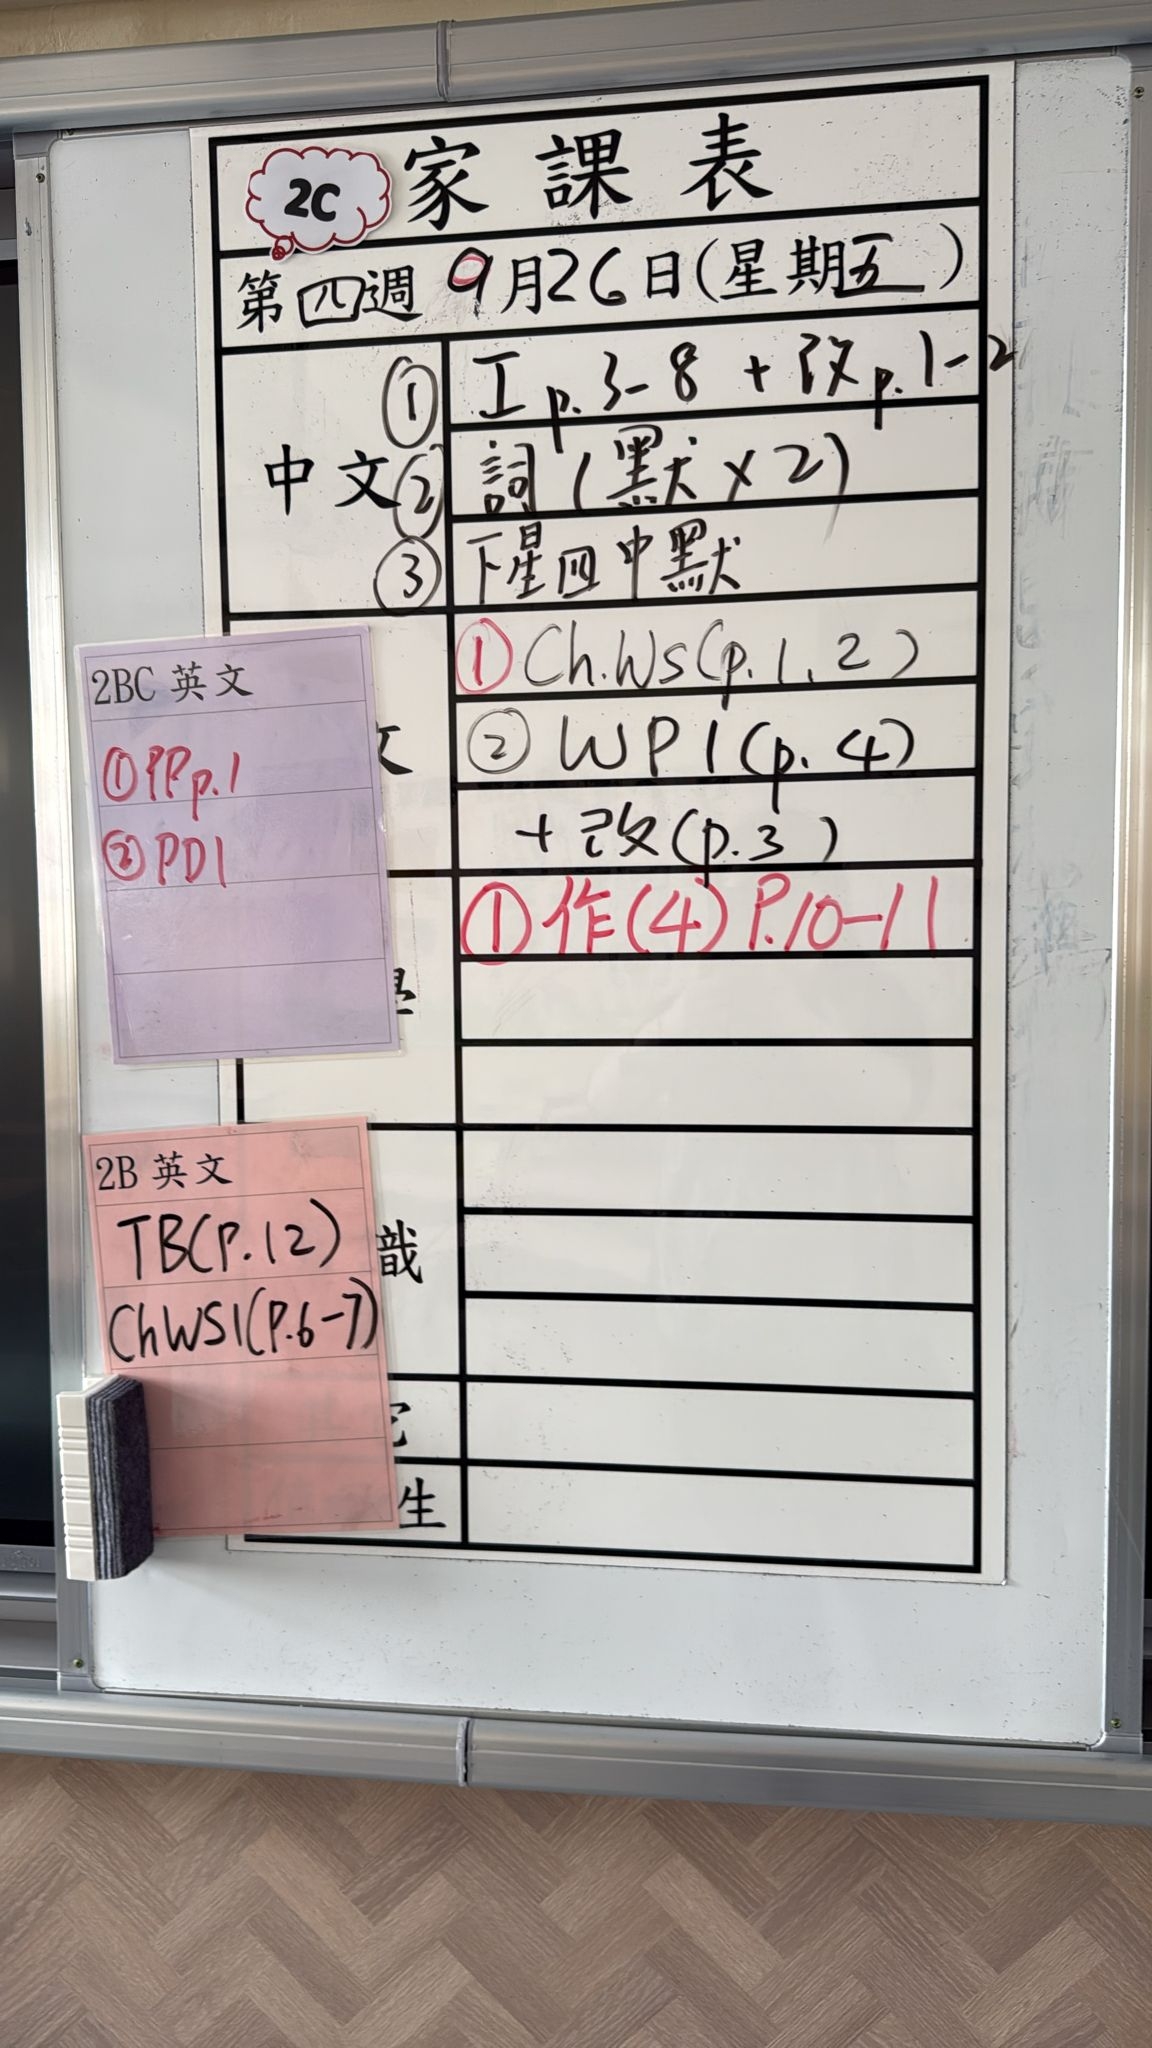 2C 家課表
第四週 9月26日(星期五)
中文
① 工p.3-8 + 改p.1-2
② 詞(默x2)
③ 下星四中默
文
① Ch.Ws(p.1,2)
② WP1(p.4)
+改(p.3)
① 作(4)P.10-11
生
2BC 英文
①PPp.1
②PD1
2B 英文
TB(P.12)
ChWS1(P.6-7)